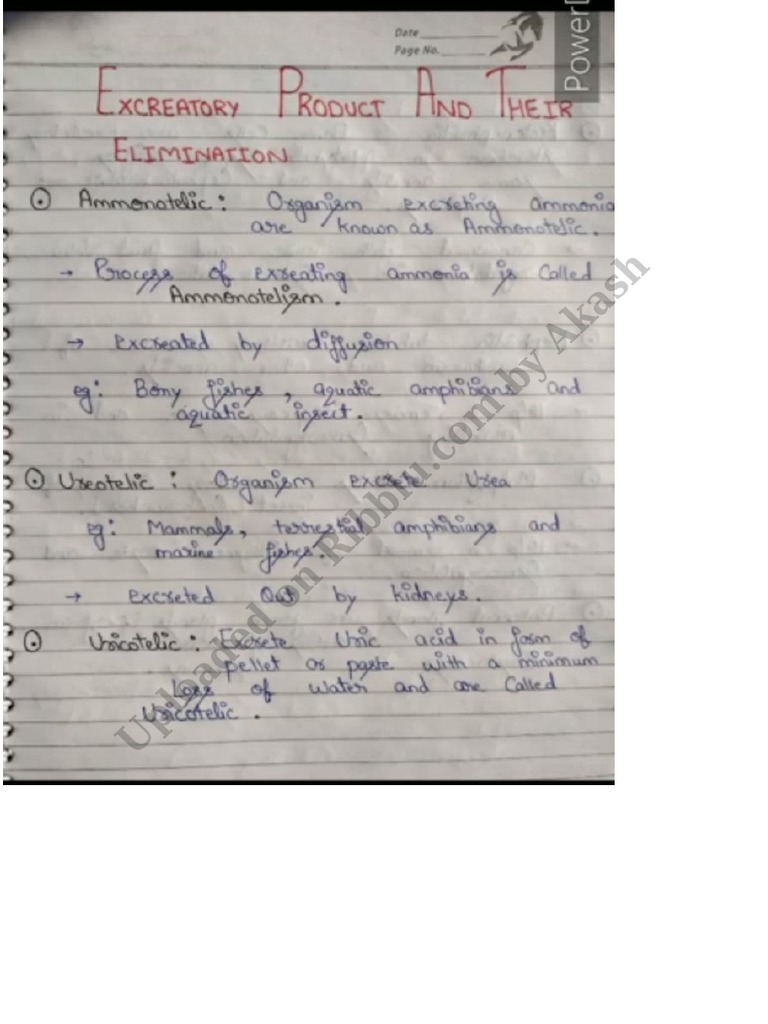 Date
Page No.
Power
EXCREATORY PRODUCT AND THEIR
ELIMINATION
Ammonotelic : Organism excreting ammonia
are known as Ammonotelic.
→ Process of exreating ammonia is called
Ammonotelism.
→ excreated by diffusion
eg: Bony fishes, aquatic amphibians and
aquatic insect.
Ureotelic : Organism excrete Urea
eg: Mammals, terrestial amphibians and
marine fishes.
→ excreted Out by kidneys.
Uricotelic : Excrete Uric acid in form of
pellet or paste with a minimum
Loss of water and are Called
Uricotelic.
Uploaded on Ribblu.com by Akash